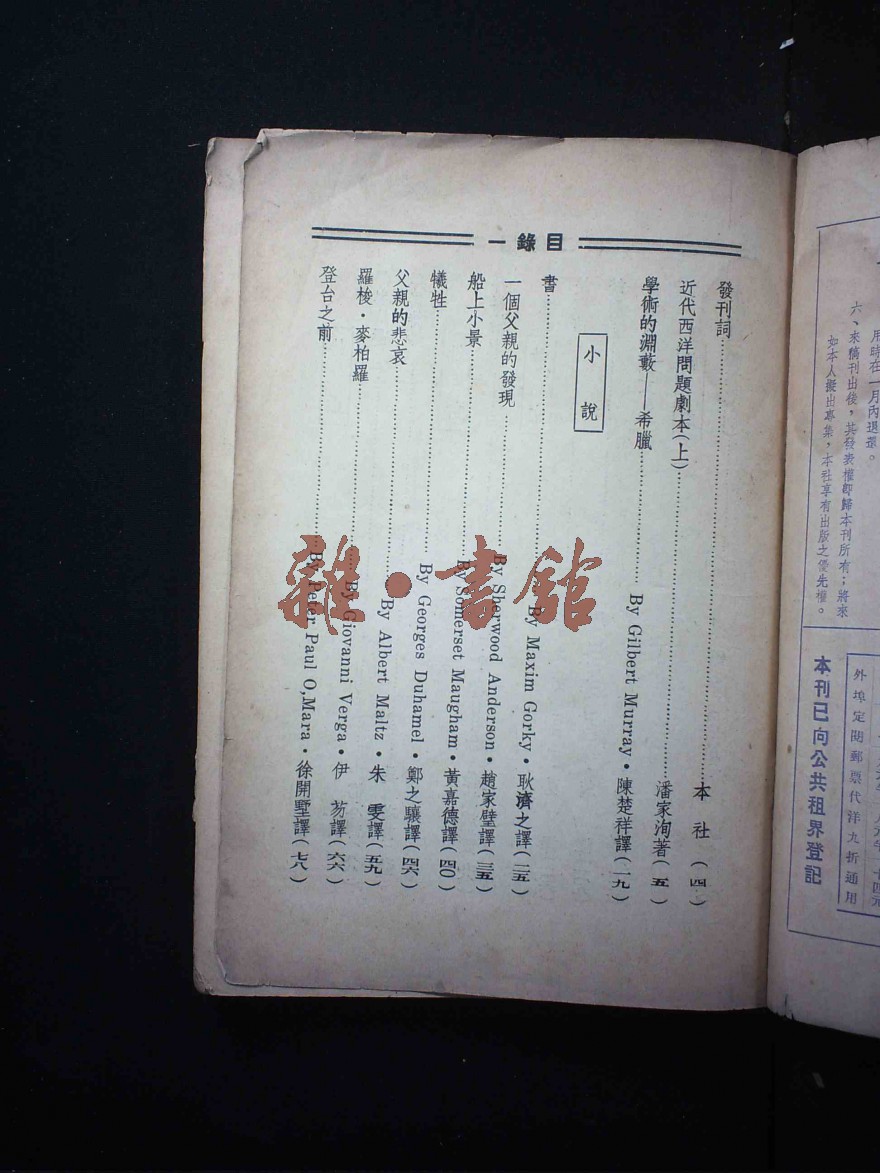 目錄一
發刊詞……本社(四)
近代西洋問題劇本(上)……潘家洵著(五)
學術的淵藪——希臘……By Gilbert Murray·陳楚祥譯(一九)
小說
書……By Maxim Gorky·耿濟之譯(二五)
一個父親的發現……By Sherwood Anderson·趙家璧譯(三五)
船上小景……By Somerset Maugham·黃嘉德譯(四〇)
犧牲……By Georges Duhamel·鄭之驤譯(四六)
父親的悲哀……By Albert Maltz·朱雯譯(五九)
羅梭·麥柏羅……By Giovanni Verga·伊芴譯(六六)
登台之前……By Peter Paul O,Mara·徐開墅譯(七八)
用時在一月內退還。
六、來稿刊出後，其發表權即歸本刊所有；將來
如本人擬出專集，本社享有出版之優先權。
外埠定閱郵票代洋九折通用
本刊已向公共租界登記
雜·書館